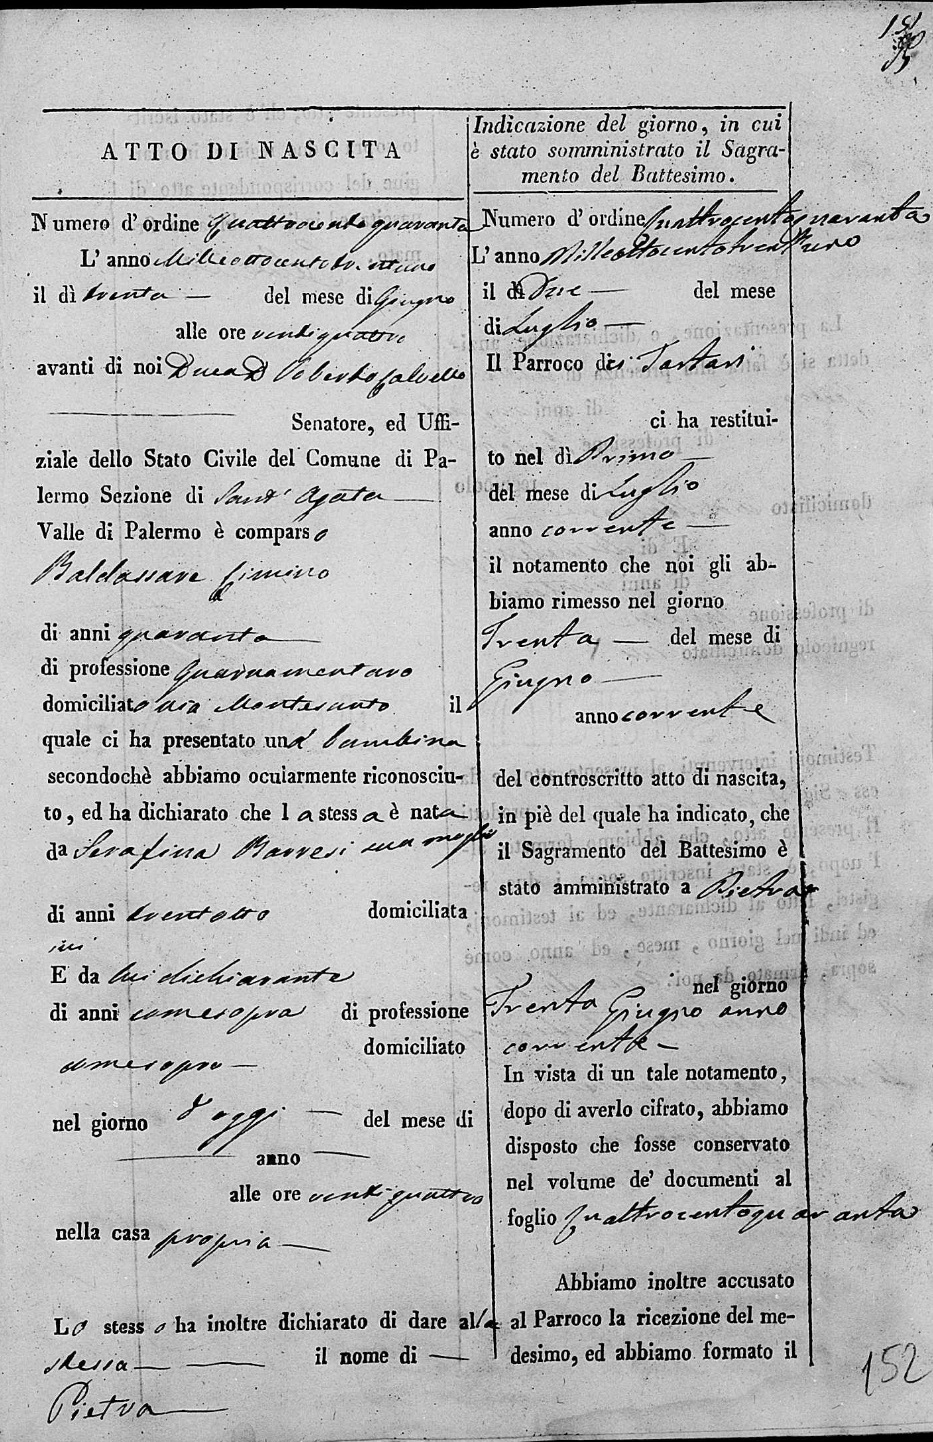 151
ATTO DI NASCITA
Numero d'ordine Quattrocentoquaranta
L'anno Milleottocentotrentuno
il dì trenta — del mese di Giugno
alle ore ventiquattro
avanti di noi Duca D Roberto Calvello
Senatore, ed Uffi-
ziale dello Stato Civile del Comune di Pa-
lermo Sezione di Sant' Agata —
Valle di Palermo è comparso
Baldassare Cimino
di anni quaranta —
di professione Guarnamentaro
domiciliato via Montesanto il
quale ci ha presentato una bambina
secondochè abbiamo ocularmente riconosciu-
to, ed ha dichiarato che la stessa è nata
da Serafina Barresi sua moglie
di anni trentotto domiciliata
ivi
E da lui dichiarante
di anni come sopra di professione
come sopra — domiciliato
nel giorno d'oggi — del mese di
— anno —
alle ore ventiquattro
nella casa propria —
Lo stesso ha inoltre dichiarato di dare alla
stessa — — il nome di —
Pietra —
Indicazione del giorno, in cui
è stato somministrato il Sagra-
mento del Battesimo.
Numero d'ordine Quattrocentoquaranta
L'anno Milleottocentotrentuno
il dì Due — del mese
di Luglio —
Il Parroco dei Tartari
ci ha restitui-
to nel dì Primo —
del mese di Luglio
anno corrente —
il notamento che noi gli ab-
biamo rimesso nel giorno
Trenta — del mese di
Giugno —
anno corrente
del controscritto atto di nascita,
in piè del quale ha indicato, che
il Sagramento del Battesimo è
stato amministrato a Pietra
nel giorno
Trenta Giugno anno
corrente —
In vista di un tale notamento,
dopo di averlo cifrato, abbiamo
disposto che fosse conservato
nel volume de' documenti al
foglio Quattrocentoquaranta
Abbiamo inoltre accusato
al Parroco la ricezione del me-
desimo, ed abbiamo formato il
152